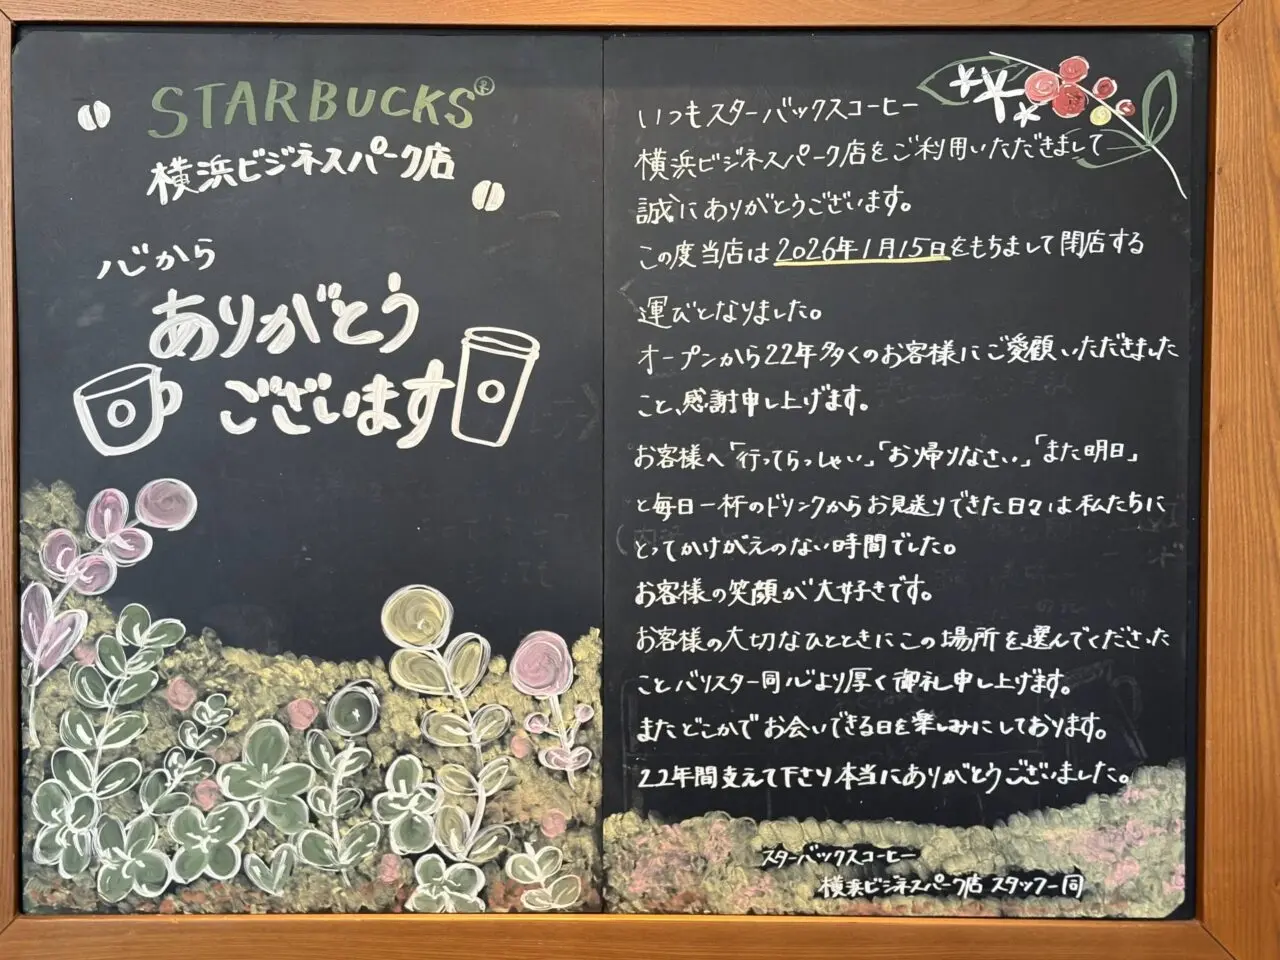 STARBUCKS®
横浜ビジネスパーク店
心から
ありがとう
ございます
いつもスターバックスコーヒー
横浜ビジネスパーク店をご利用いただきまして
誠にありがとうございます。
この度当店は2026年1月15日をもちまして閉店する
運びとなりました。
オープンから22年多くのお客様にご愛顧いただきました
こと、感謝申し上げます。
お客様へ「行ってらっしゃい」「お帰りなさい」「また明日」
と毎日一杯のドリンクからお見送りできた日々は私たちに
とってかけがえのない時間でした。
お客様の笑顔が大好きです。
お客様の大切なひとときにこの場所を選んでくださった
ことバリスター同心より厚く御礼申し上げます。
またどこかでお会いできる日を楽しみにしております。
22年間支えて下さり本当にありがとうございました。
スターバックスコーヒー
横浜ビジネスパーク店 スタッフ一同